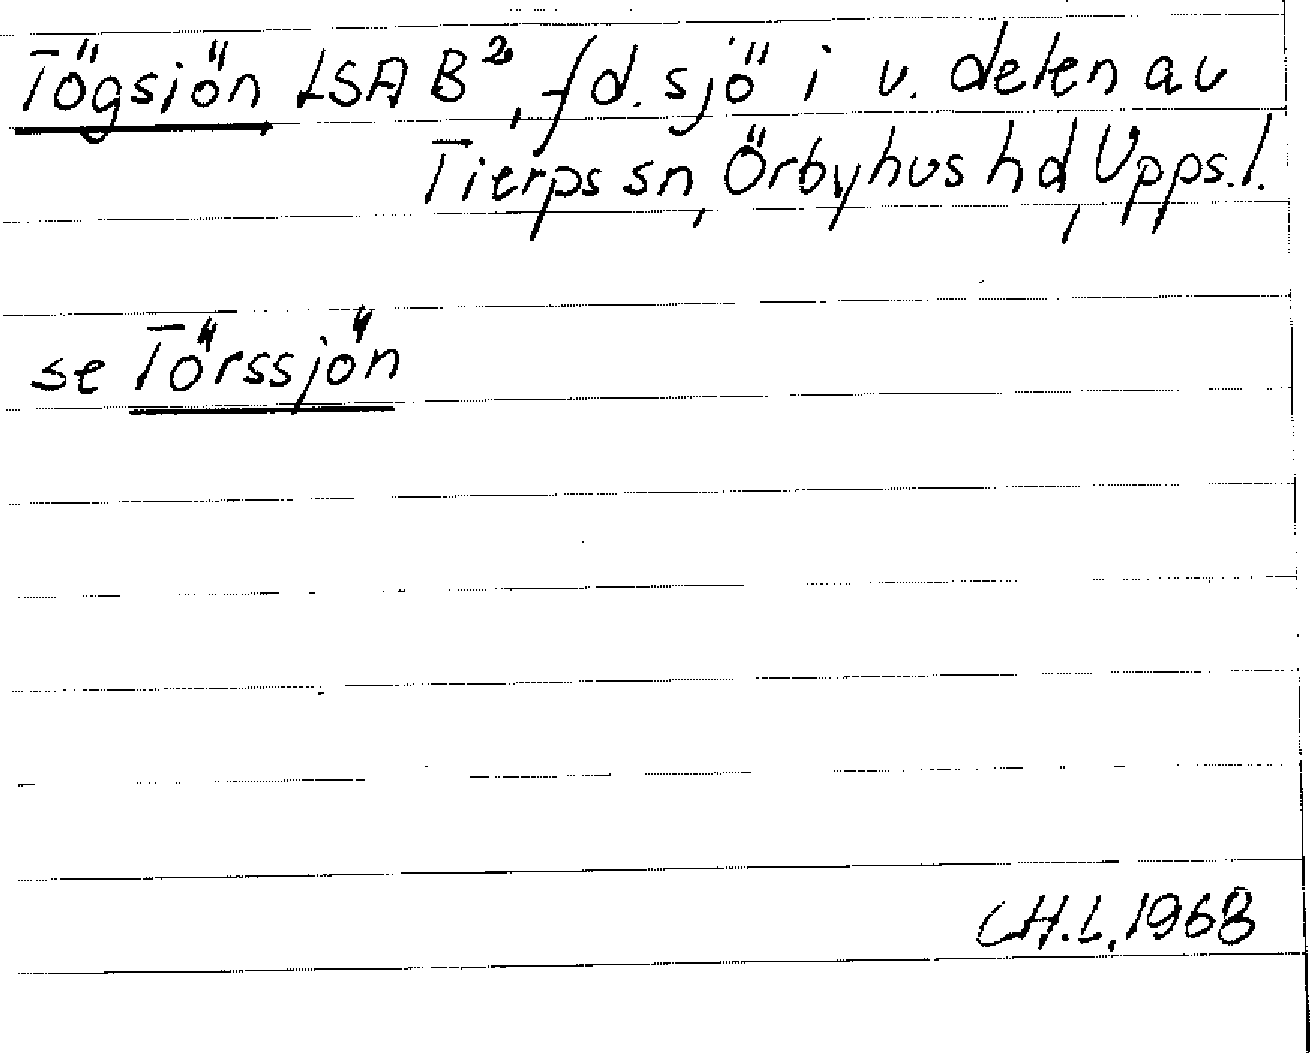 Tögsjön LSA B², f d. sjö i v. delen av
Tierps sn, Örbyhus hd, Upps. l.
se Törssjön
C.H.L. 1968